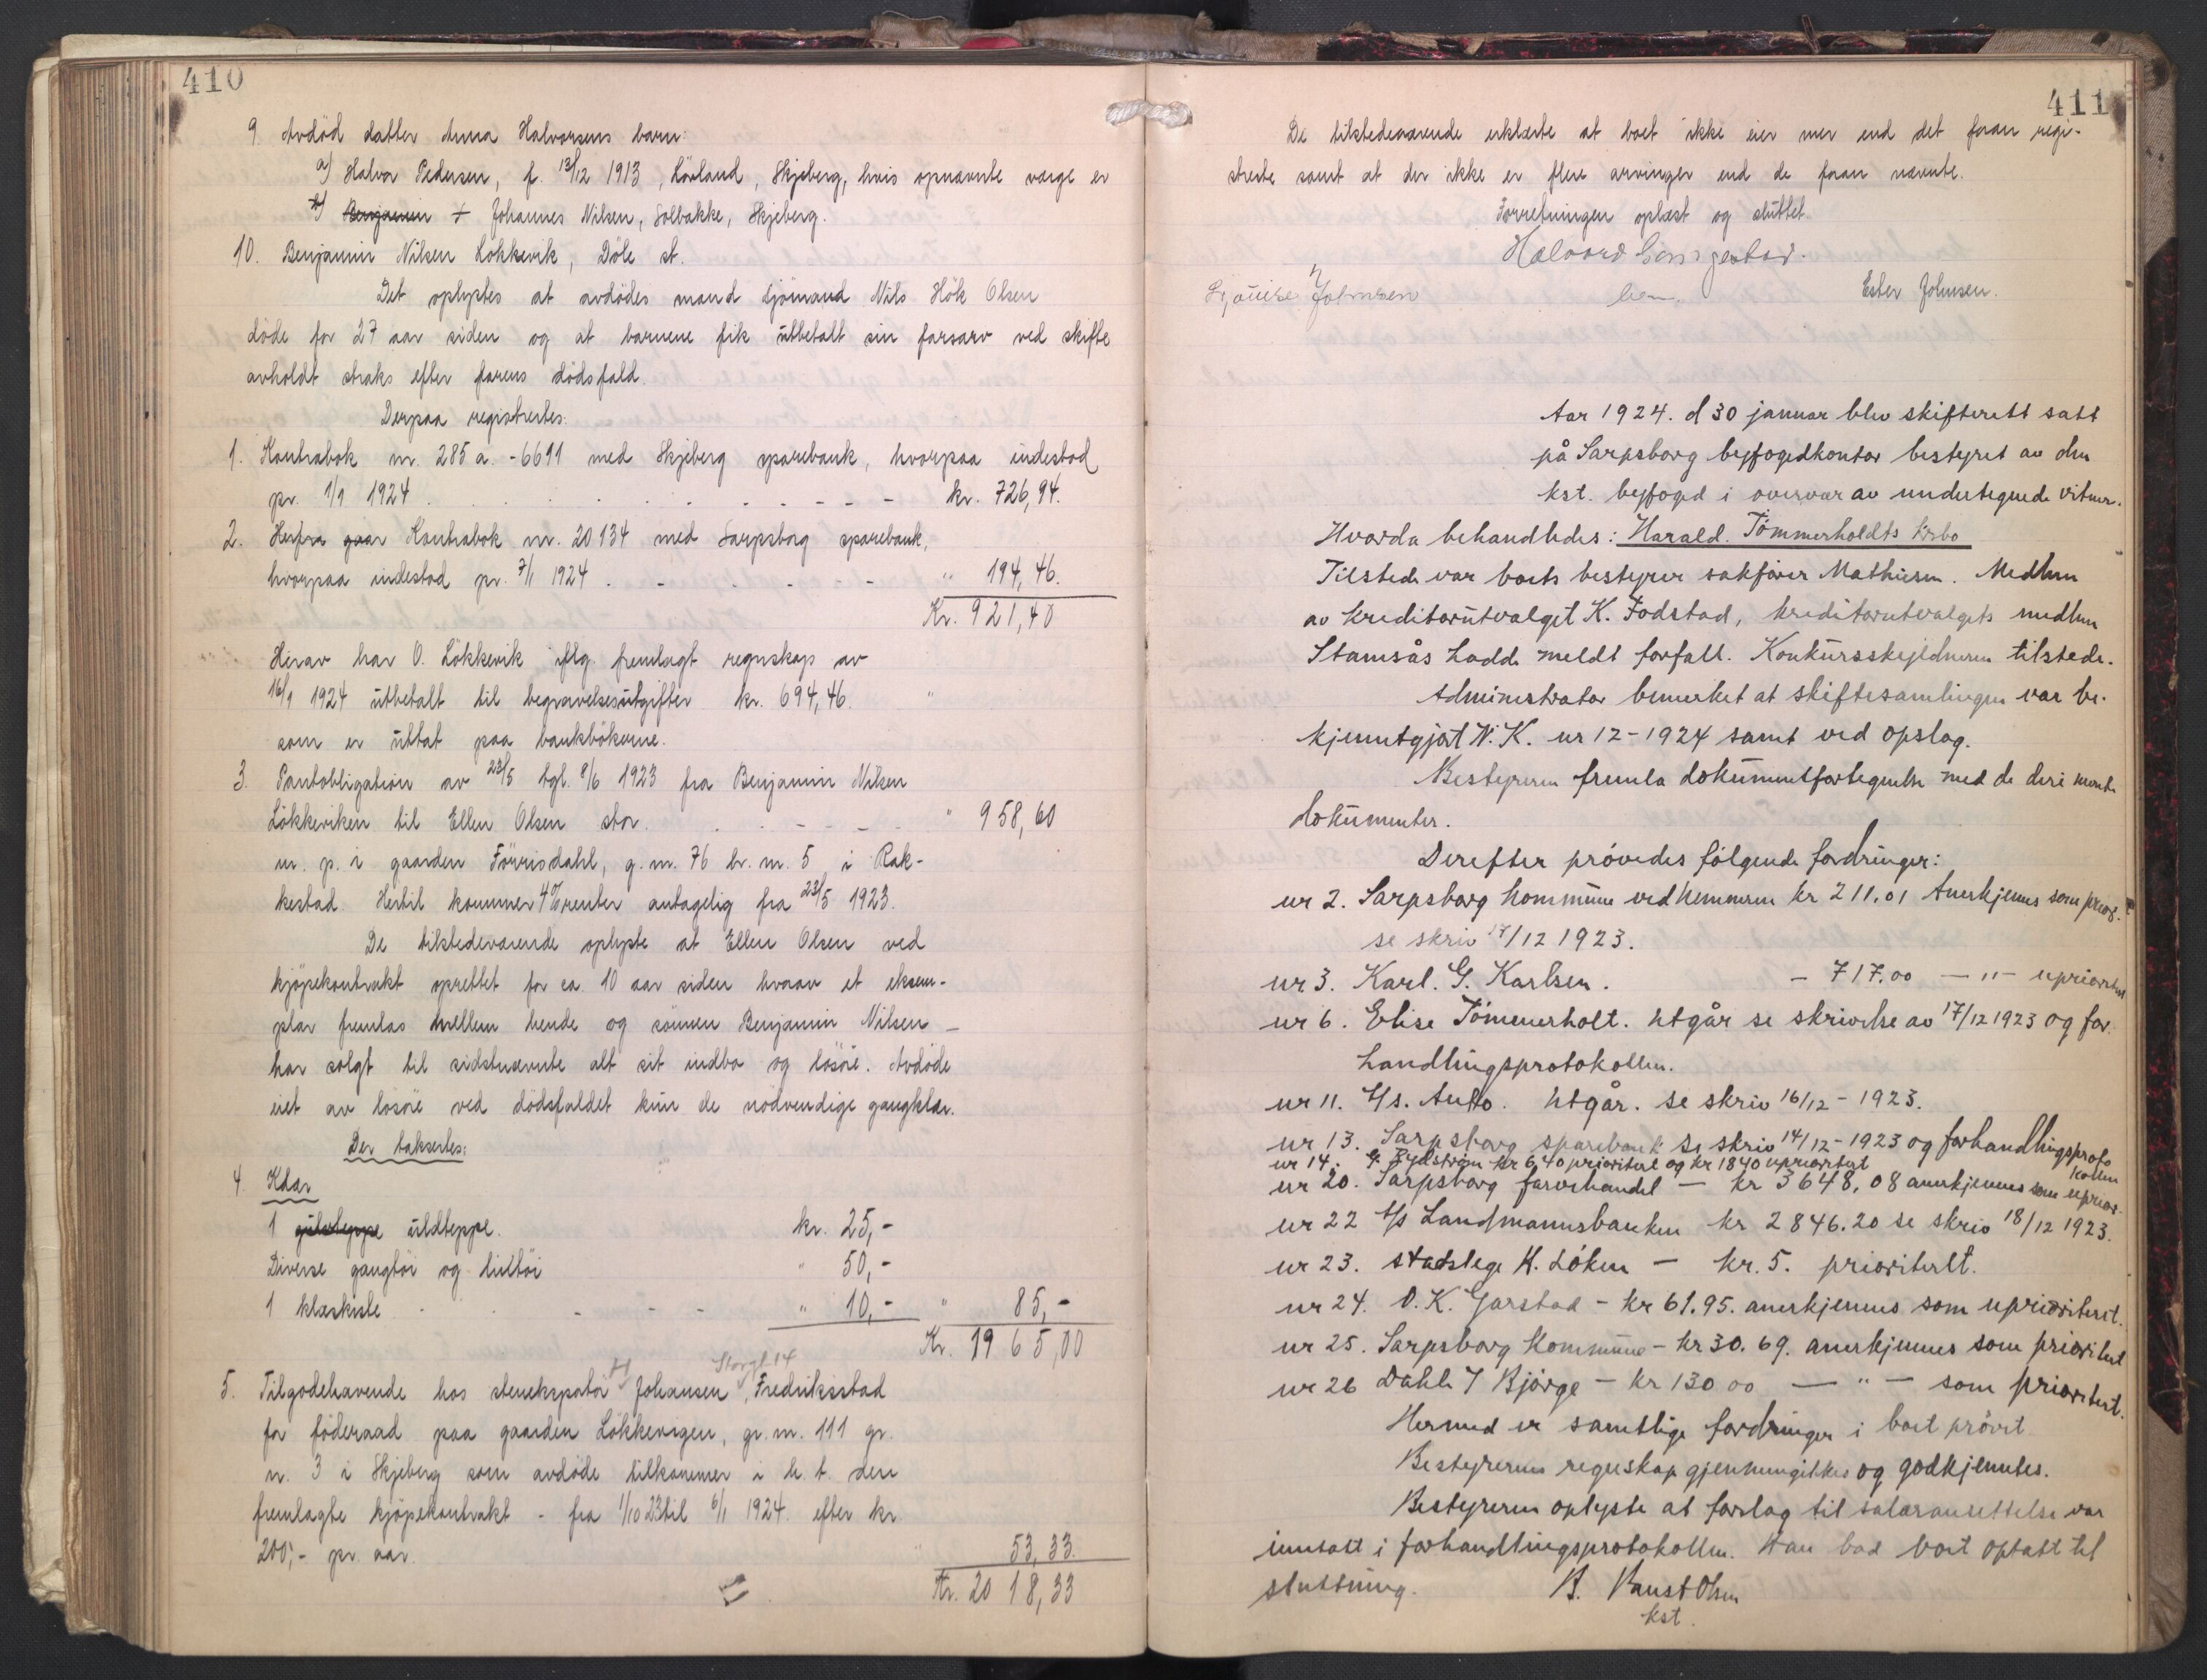 410
9. Avdöd datter Anna Halvorsens barn:
a) Halvor Pedersen, f. 13/12 1913, Lövland, Skjeberg, hvis opnævnte værge er
b) Benjamin + Johannes Nilsen, Solbakke, Skjeberg.
10. Benjamin Nilsen Lökkevik, Döle st.
Det oplystes at avdödes mand sjömand Nils Hök Olsen
döde for 27 aar siden og at barnene fik utbetalt sin farsarv ved skifte
avholdt straks efter farens dödsfald.
Derpaa registrertes:
1. Kontrabok nr. 285 a. - 6611 med Skjeberg sparebank, hvorpaa indestod
pr. 1/1 1924 . . . . kr. 726,94.
2. Herfra gaar Kontrabok nr. 20134 med Sarpsborg sparebank,
hvorpaa indestod pr. 7/1 1924 . . . " 194,46.
Kr. 921,40
Herav har O. Lökkevik iflg. fremlagt regnskap av
16/1 1924 utbetalt til begravelsesutgifter kr. 694,46.
som er uttat paa bankbökerne.
3. Pantobligation av 23/5 tgl. 8/6 1923 fra Benjamin Nilsen
Lökkeviken til Ellen Olsen stor . . . " 958,60
m. p. i gaarden Förrisdahl, g.nr. 76 br. nr. 5 i Rak-
kestad. Hertil kommer 4% renter antagelig fra 23/5 1923.
De tilstedeværende oplyste at Ellen Olsen ved
kjöpekontrakt oprettet for ca. 10 aar siden hvorav et eksem-
plar fremlas mellem hende og sönnen Benjamin Nilsen -
har solgt til sidstnævnte alt sit indbo og lösöre. Avdöde
eiet av lösöre ved dödsfaldet kun de nödvendige gangklær.
Der takseredes:
4. Klær
1 uldteppe. kr. 25,-
Diverse gangtöi og lintöi " 50,-
1 klæskiste . . . " 10,- " 85,-
Kr. 1965,00
Storgt. 14
5. Tilgodehavende hos steneksportör H Johansen, Fredriksstad
for föderaad paa gaarden Lökkevigen, gr. nr. 111 gr.
nr. 3 i Skjeberg som avdöde tilkommer i h. t. den
fremlagte kjöpekontrakt - fra 1/10 23 til 6/1 1924 efter kr.
200,- pr. aar. 53,33.
Kr. 2018,33
411
De tilstedeværende erklærte at boet ikke eier mer end det foran regi-
strerte samt at der ikke er flere arvinger end de foran nævnte.
Forretningen oplæst og sluttet.
Halvord
Johnsen Ester Johnsen.
Aar 1924. d 30 januar blev skifterett satt
på Sarpsborg byfogedkontor bestyret av den
kst. byfoged i overvær av undertegnede vitner.
Hvorda behandledes: Harald. Tömmerholdts krbo
Tilstede var boets bestyrer sakförer Mathiesen. Medlem
av kreditorutvalget K. Fodstad, kreditorutvalgets medlem
Stamsås hadde meldt forfall. Konkursskyldneren tilstede.
Administrator bemerket at skiftesamlingen var be-
kjenntgjat N. K. nr 12-1924 samt ved opslag.
Bestyreren fremla dokumentfortegnelse med de deri nevnte
dokumenter.
Derefter prövedes fölgende fordringer:
nr 2. Sarpsborg kommune ved kemneren kr 211.01 Anerkjennes som prior.
se skriv 17/12 1923.
nr 3. Karl. G. Karlsen. - 717.00 - " - uprioritert
nr 6. Elise Tömmerholt. utgår se skrivelse av 17/12 1923 og for-
handlingsprotokollen.
nr 11. A/s. Auto. utgår. se skriv 16/12 - 1923.
nr 13. Sarpsborg sparebank se skriv 14/12 - 1923 og forhandlingsproto
kollen
nr 14. kr 6,40 prioritert og kr 1840 uprioritert
nr 20. Sarpsborg farvehandel - kr 3648,08 anerkjennes som uprior.
nr 22 A/s Landmannsbanken kr 2846.20 se skriv 18/12 1923.
nr 23. stadslege H. Löken - kr. 5. prioritert.
nr 24. O. K. Garstad - kr 61.95. anerkjennes som uprioritert.
nr 25. Sarpsborg Kommune - kr 30.69. anerkjennes som prioritert
nr 26 Dahl & Bjørge - kr 130 00 - " - som prioritert.
Hermed er samtlige fordringer i boet prövet.
Bestyrerens regnskap gjennemgikkes og godkjentes.
Bestyreren oplyste at forslag til salæransettelse var
innsatt i forhandlingsprotokollen. Han bad boet optatt til
sluttning. B. Ranst Olsen
kst.